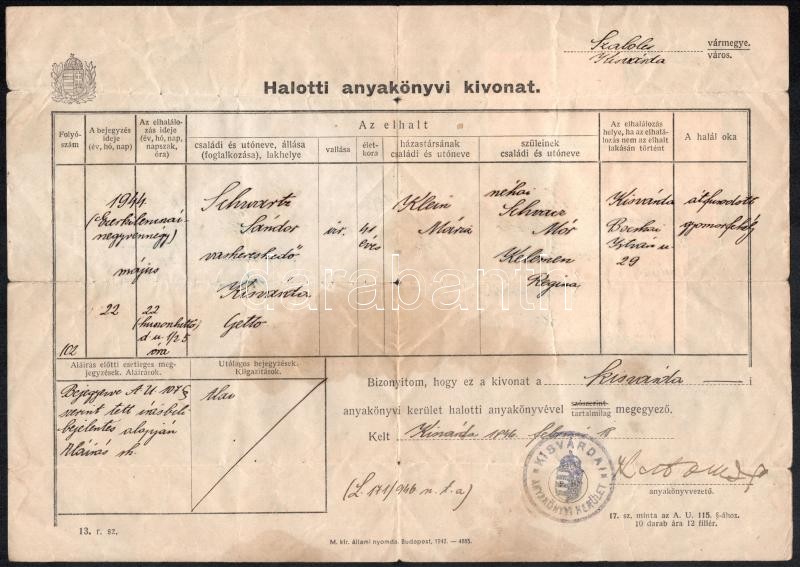 Szabolcs vármegye.
Kisvárda város.
Halotti anyakönyvi kivonat.
Folyó-
szám
A bejegyzés
ideje
(év, hó, nap)
Az elhalálo-
zás ideje
(év, hó, nap,
napszak,
óra)
Az elhalt
családi és utóneve, állása
(foglalkozása), lakhelye
vallása
élet-
kora
házastársának
családi és utóneve
szüleinek
családi és utóneve
Az elhalálozás
helye, ha az elhalá-
lozás nem az elhalt
lakásán történt
A halál oka
102
1944
negyvennégy)
május
22
22
(huszonkettő)
d u 1/2 5
óra
Schvartz
Sándor
vaskereskedő
Kisvárda
Getto
izr.
41
éves
Klein
Mária
néhai
Schvarcz
Mór
Kelemen
Regina
Kisvárda
Bocskai
István u
29
átfuródott
gyomorfekély
Aláírás előtti esetleges meg-
jegyzések. Aláírások.
Bejegyezve A. U. 107 §
szerint tett írásbeli
bejelentés alapján
Aláírás sk.
Utólagos bejegyzések.
Kiigazítások.
Bizonyítom, hogy ez a kivonat a Kisvárda — i
anyakönyvi kerület halotti anyakönyvével szószerint
tartalmilag megegyező.
Kelt Kisvárda 1946 február 18
(L. 171/946 n. t. a)
KISVÁRDAI
ANYAKÖNYVI KERÜLET
anyakönyvvezető.
13. r. sz.
M. kir. állami nyomda. Budapest, 1942. — 4885.
17. sz. minta az A. U. 115. §-ához.
10 darab ára 12 fillér.
darabanth